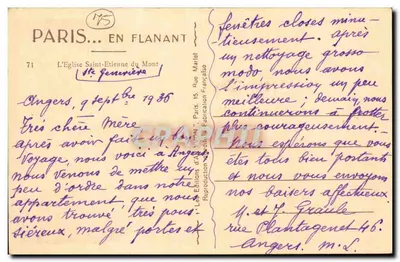 175
PARIS... EN FLANANT
71 L'Eglise Saint-Etienne du Mont
Ste Geneviève
Angers, 9 septbre 1936
Très chère Mère
après avoir fait
voyage, nous voici à Angers.
nous venons de mettre un
peu d'ordre dans notre
appartement que nous
avons trouvé très pous-
siéreux, malgré portes et
Les Editions d'Art Paris, 15, Rue Martel
Reproduction Fabrication Française
fenêtres closes minu-
tieusement. après
un nettoyage grosso
modo, nous avons
l'impression un peu
meilleure ; demain, nous
continuerons à frotter
plus courageusement.
nous espérons que vous
êtes tous bien portants
et nous vous envoyons
nos baisers affectueux.
M. et J. Graule
rue Plantagenet 46.
Angers. M. L.